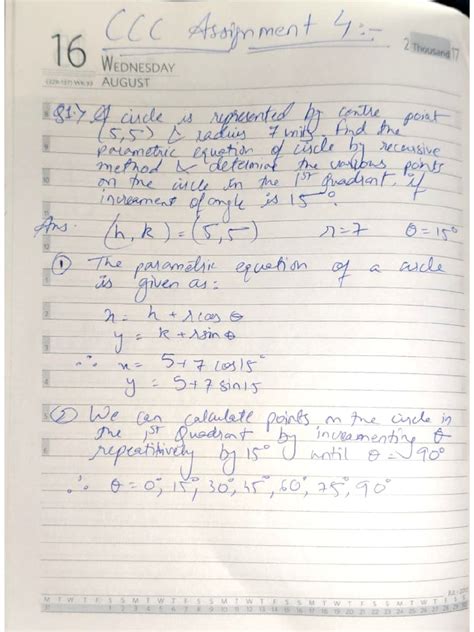 CCC Assignment 4:-
16 WEDNESDAY
AUGUST
2 Thousand 17
Q1→ A circle is represented by centre point
(5,5) & radius 7 units, find the
parametric equation of circle by recursive
method & determine the various points
on the circle in the 1st Quadrant, if
increament of angle is 15°.
Ans. (h, k) = (5,5) r=7 θ=15°
① The parametric equation of a circle
is given as:
x = h + r cos θ
y = k + r sin θ
∴ x = 5+7 cos15°
y = 5+7 sin15
② We can calculate points on the circle in
the 1st Quadrant by incrementing θ
repeatitively by 15° until θ = 90°
∴ θ = 0°, 15°, 30°, 45°, 60°, 75°, 90°
M T W T F S S M T W T F S S M T W T F S S M T W T F S S